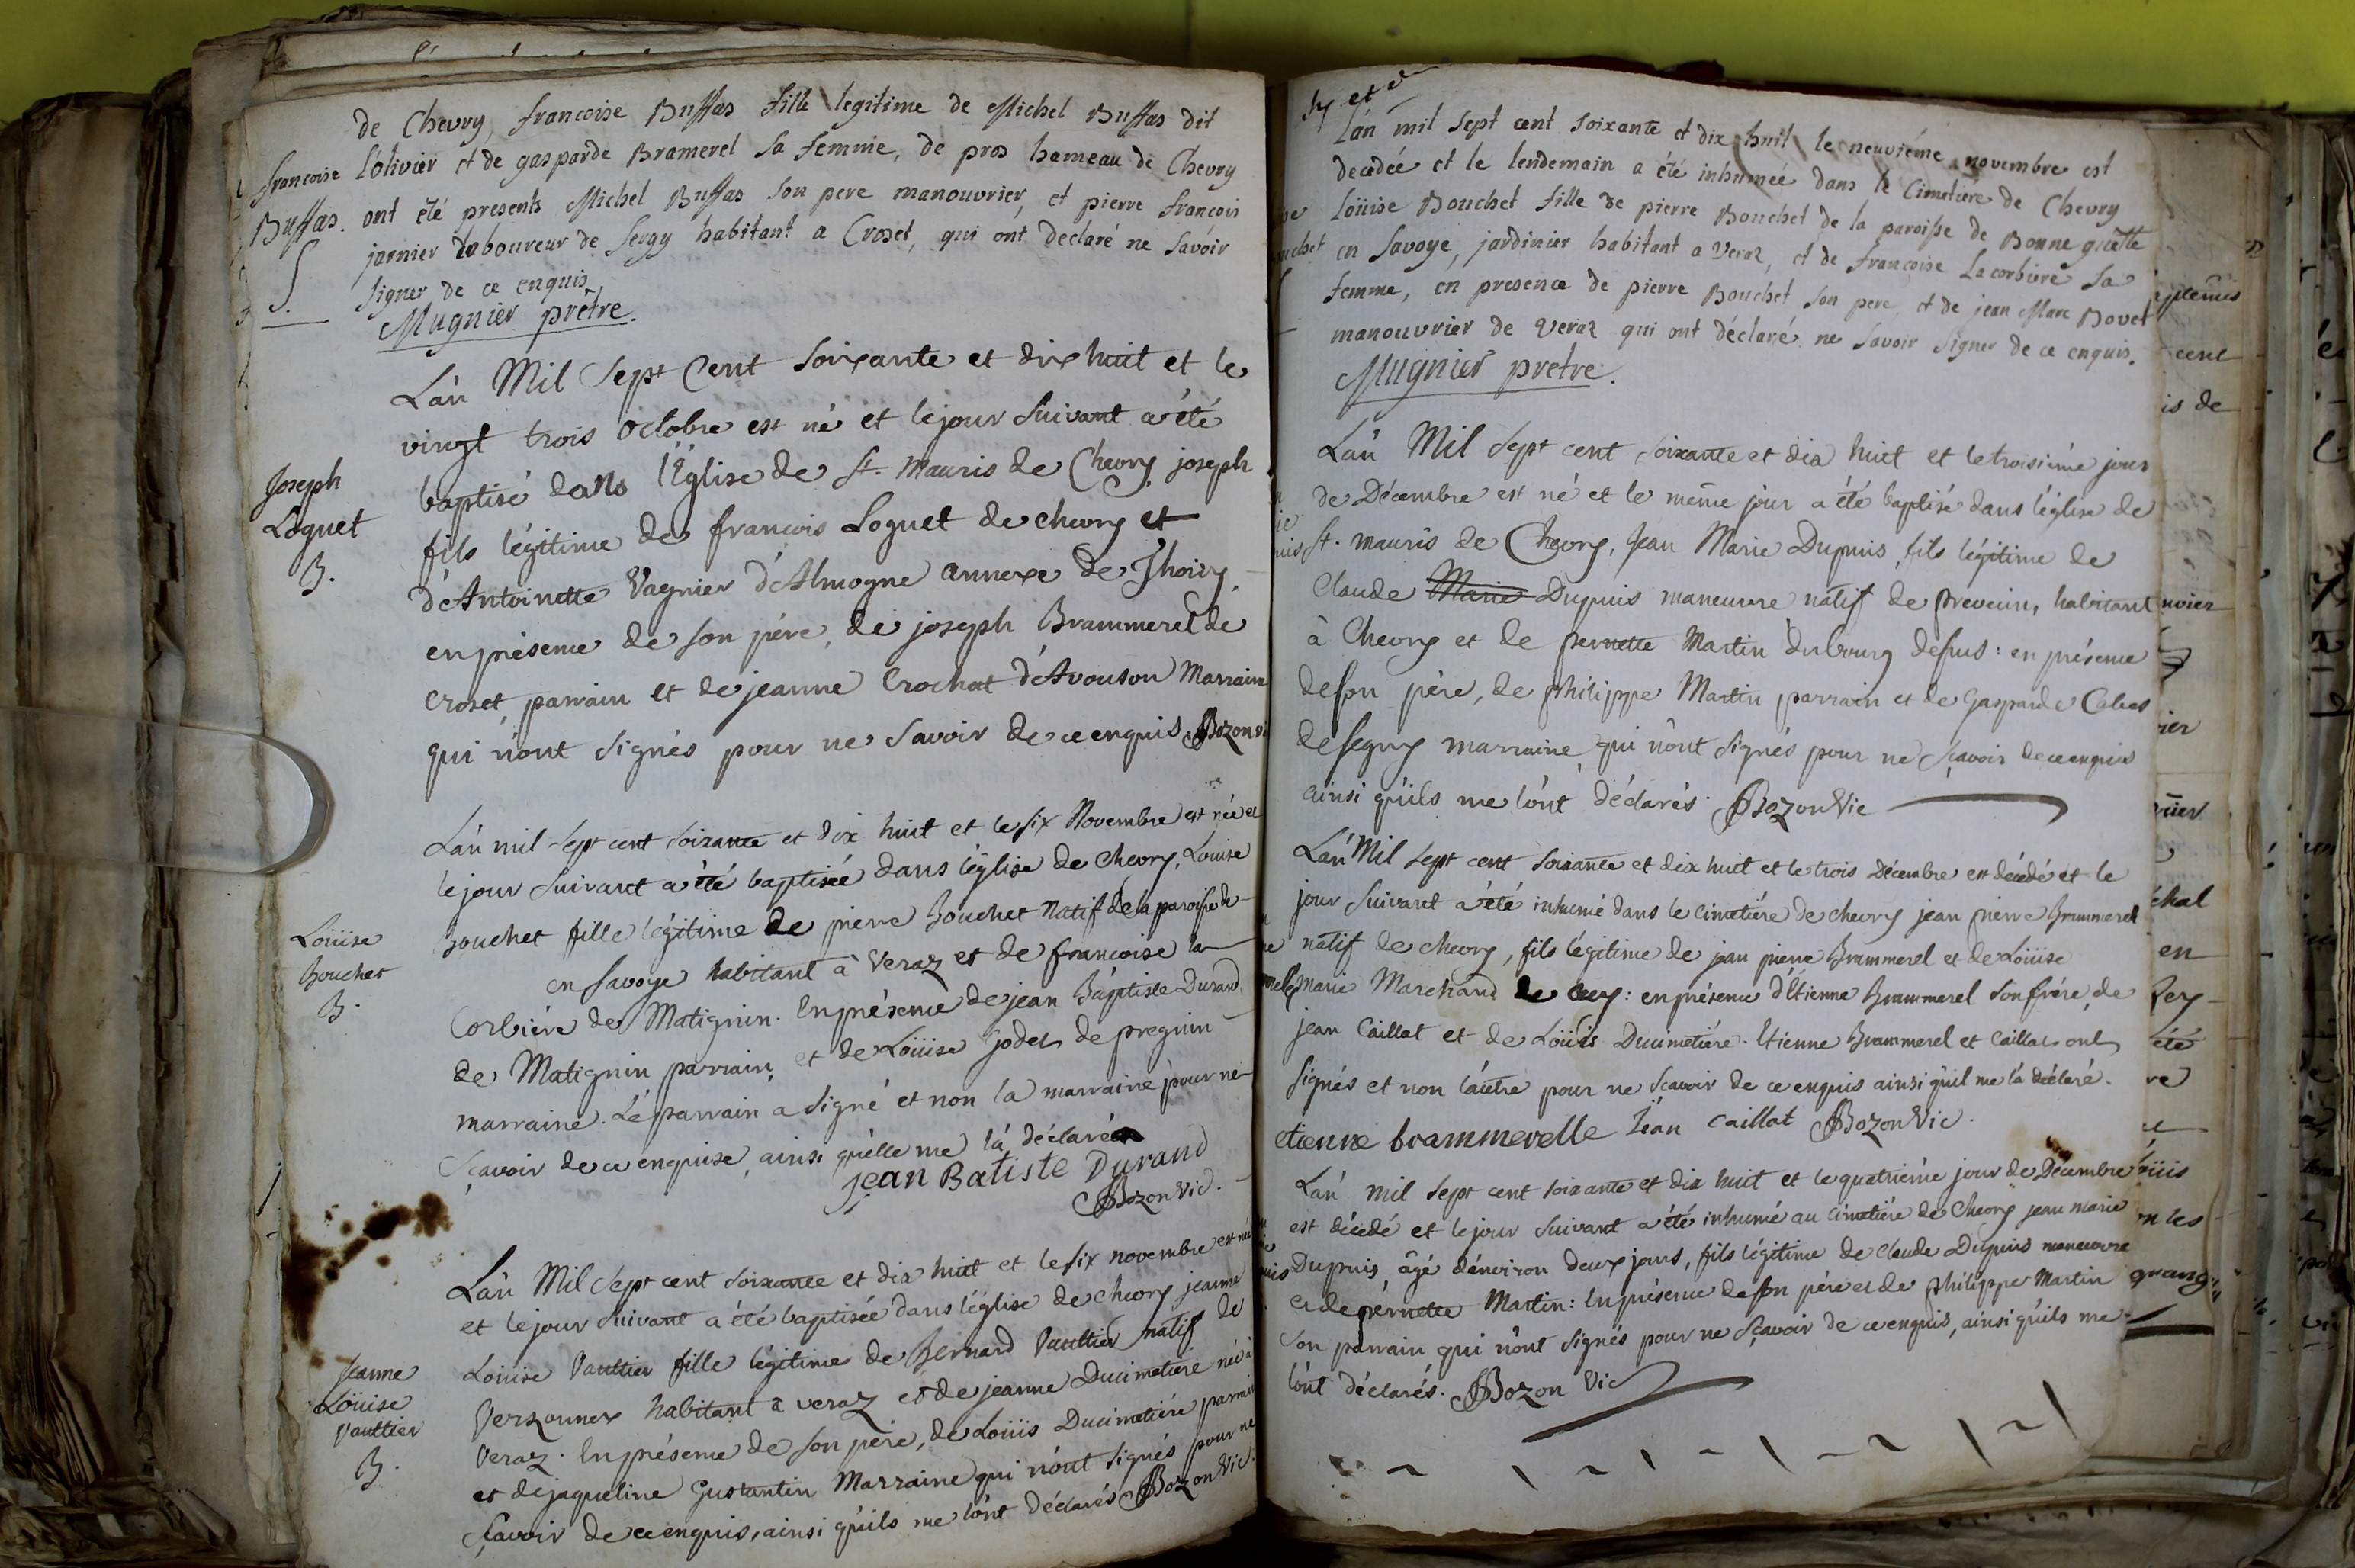 de Chevry, francoise Buffas fille legitime de Michel Buffas dit
francoise
Buffas.
S.
l'olivier et de gasparde Bramerel sa femme, de pros hameau de Chevry
ont été presents Michel Buffas son pere manouvrier, et pierre francois
jarnier laboureur de Sergy habitant a Croset, qui ont declaré ne savoir
signer de ce enquis
Mugnier prêtre.
L'an Mil Sept Cent Soixante et dix huit et le
vingt trois octobre est né et le jour suivant a été
Joseph
Loguet
B.
baptisé dans l'Eglise de St. Mauris de Chevry, joseph
fils légitime de francois Loguet de chevry et
d'Antoinette Vagnier d'Almogne annexe de Thoiry.
en présence de son père, de joseph Brammerel de
Croset parrain et de jeanne Crochat d'Avouson Marraine
qui n'ont signés pour ne savoir de ce enquis. Bozon vi
L'an mil sept cent soixante et dix huit et le six Novembre est née et
le jour suivant a été baptisée dans l'église de chevry, Louise
Loüise
Bouchet
B.
Bouchet fille légitime de pierre Bouchet Natif de la paroisse de
en Savoye habitant à Veraz et de francoise la
Corbiére de Matignin. En présence de jean Baptiste Durand
de Matignin parrain et de Loüise jodet de pregnin
marraine. Le parrain a signé et non la marraine pour ne
sçavoir de ce enquise, ainsi qu'elle me l'a déclaré
jean Batiste Durand
Bozon Vic.
L'an Mil Sept cent soixante et dix huit et le six novembre est née
et le jour suivant a été baptisée dans l'église de chevry jeanne
Jeanne
Loüise
Vauttier
B.
Louise Vauttier fille légitime de Bernard Vauttier natif de
Versonnex habitant à veraz et de jeanne Ducimetiere née à
Veraz. En présence de son père, de Loüis Ducimetiére parrain
et de jaqueline Gustantin Marraine qui n'ont signés pour ne
sçavoir de ce enquis, ainsi qu'ils me l'ont déclarés Bozon Vic.
L'an mil sept cent soixante et dix huit le neuvième novembre est
decedée et le lendemain a été inhumée dans le Cimetiere de Chevry
Loüise Bouchet fille de pierre Bouchet de la paroisse de Bonne
en Savoye, jardinier habitant a Veraz, et de francoise Lacorbiere sa
femme, en presence de pierre Bouchet son pere, et de jean Marc Bovet
manouvrier de Veraz qui ont déclaré ne savoir signer de ce enquis.
Mugnier prêtre.
L'an Mil Sept cent soixante et dix huit et le troisiéme jour
de Décembre est né et le même jour a été baptisé dans l'église de
St. Mauris de Chevry, Jean Marie Dupuis, fils légitime de
Claude Marie Dupuis maneuvre natif de Preveim, habitant
à Chevry et de pernette Martin dubourg defius: en présence
de son père, de philippe Martin parrain et de Gasparde
de segny marraine qui n'ont signés pour ne sçavoir de ce enquis
ainsi qu'ils me l'ont déclarés. Bozon Vic
L'an Mil Sept cent soixante et dix huit et le trois Décembre est décédé et le
jour suivant a été inhumé dans le cimetiére de chevry jean pierre Brammerel
natif de chevry, fils légitime de jean pierre Brammerel et de Loüise
Marie Marchand de Cey: en présence d'Etienne Brammerel son frére, de
jean Caillat et de Loüis Ducimetiére. Etienne Brammerel et Caillat ont
signés et non l'autre pour ne sçavoir de ce enquis ainsi qu'il me l'a déclaré.
etienne brammerelle Jean Caillat Bozon Vic.
L'an mil sept cent soixante et dix huit et le quatriéme jour de Décembre
est décédé et le jour suivant a été inhumé au cimetiére de Chevry jean marie
Dupuis, âgé d'environ deux jours, fils légitime de claude Dupuis maneuvre
et de pernette Martin: En présence de son père et de philippe Martin
son parrain qui n'ont signés pour ne sçavoir de ce enquis, ainsi qu'ils me
l'ont déclarés. Bozon Vic